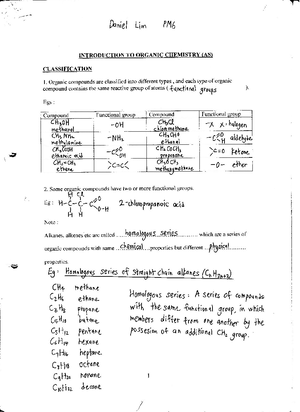 Daniel Lim PM6
INTRODUCTION TO ORGANIC CHEMISTRY (AS)
CLASSIFICATION
1. Organic compounds are classified into different types, and each type of organic
compound contains the same reactive group of atoms (functional groups ).
Egs :
Compound Functional group Compound Functional group
CH₃OH methanol -OH CH₃Cl chloromethane -X X=halogen
CH₃NH₂ methylamine -NH₂ CH₃CHO ethanal aldehyde
CH₃COOH ethanoic acid CH₃COCH₃ propanone >C=O ketone
CH₂=CH₂ ethene >C=C< CH₃OCH₃ -O- ether
2. Some organic compounds have two or more functional groups.
Eg : 2-chloropropanoic acid
Note :
Alkanes, alkenes etc are called homologous series which are a series of
organic compounds with same chemical properties but different physical
properties.
Eg : Homologous series of straight chain alkanes (CnH2n+2)
CH₄ methane
C₂H₆ ethane
C₃H₈ propane
C₄H₁₀ butane
C₅H₁₂ pentane
C₆H₁₄ hexane
C₇H₁₆ heptane
C₈H₁₈ octane
C₉H₂₀ nonane
C₁₀H₂₂ decane
Homologous series : A series of compounds
with the same functional group, in which
members differ from one another by the
possesion of an additional CH₂ group.
1